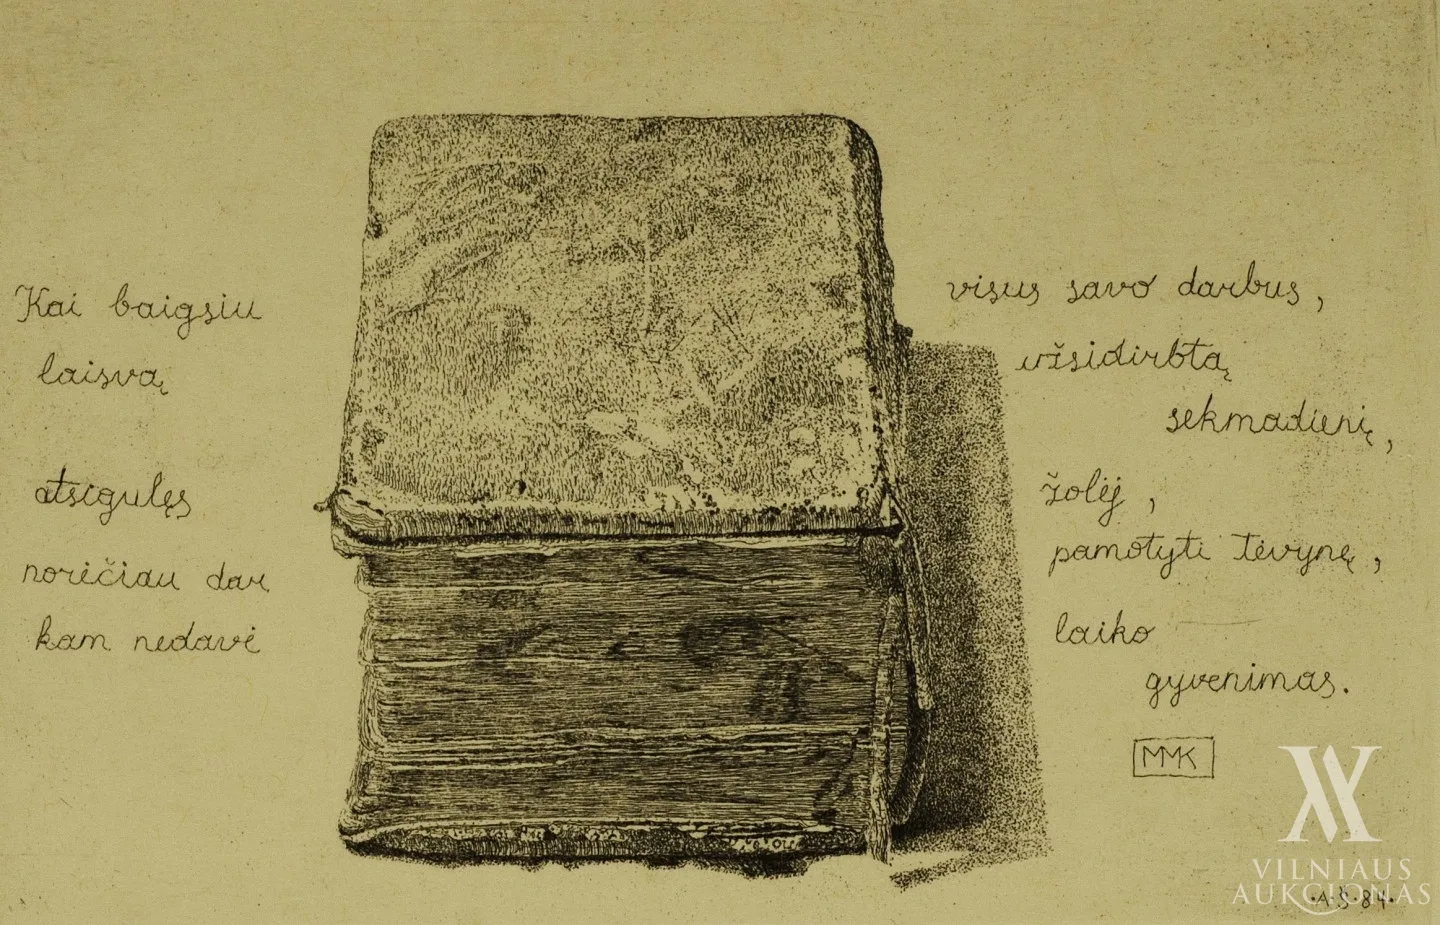 Kai baigsiu visus savo darbus,
laisvą užsidirbtą
sekmadienį,
atsigulęs žolėj,
norėčiau dar pamatyti tėvynę,
kam nedavė laiko
gyvenimas.
MMK
VILNIAUS
AUKCIONAS
·A·Š·84·